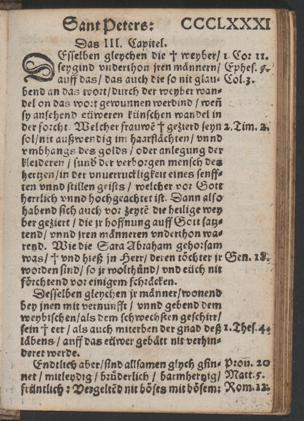 Sant Peters: CCCLXXXI
Das III. Capitel.
DEsselben gleychen die † weyber/ 1. Cor 11.
seygind vnderthon jren männeren/ Ephes. 5.
auff das/ das auch die so nit glau- Col. 3.
bend an das wort/ durch der weyber wan-
del on das wort gewunnen werdind/ weñ
sy ansehend eüweren künschen wandel in
der forcht. Welcher frauwē † gezierd seyn 2. Tim. 2.
sol/ nit außwendig im haarflächten/ vnnd
vmbhangs des golds/ oder anlegung der
kleideren/ sund der verborgen mensch des
hertzen/ in der vnuerruckligkeit eines senff-
ten vnnd stillen geists/ welcher vor Gott
herrlich vnnd hochgeachtet ist. Dann also
habend sich auch vor zeytē die heilige wey
ber geziert/ die jr hoffnung auff Gott satz-
tend/ vnnd jren männeren vnderthon wa-
rend. Wie die Sara Abraham gehorsam
was/ † vnd hieß jn Herr/ deren töchter jr Gen. 18.
worden sind/ so jr wolthůnd/ vnd eüch nit
förchtend vor einigem schräcken.
Desselben gleychen jr männer/ wonend
bey jnen mit vernunfft/ vnnd gebend dem
weybischen/ als dem schwechsten geschirr/
sein † eer/ als auch miterben der gnad deß 1. Thes. 4.
läbens/ auff das eüwer gebätt nit verhin-
deret werde.
Endtlich aber/ sind allsamen glych gsin- Prou. 20
net/ mitleydig/ brüderlich/ barmhertzig/ Matt. 5.
früntlich: Vergeltēd nit böses mit bösem: Rom. 12.